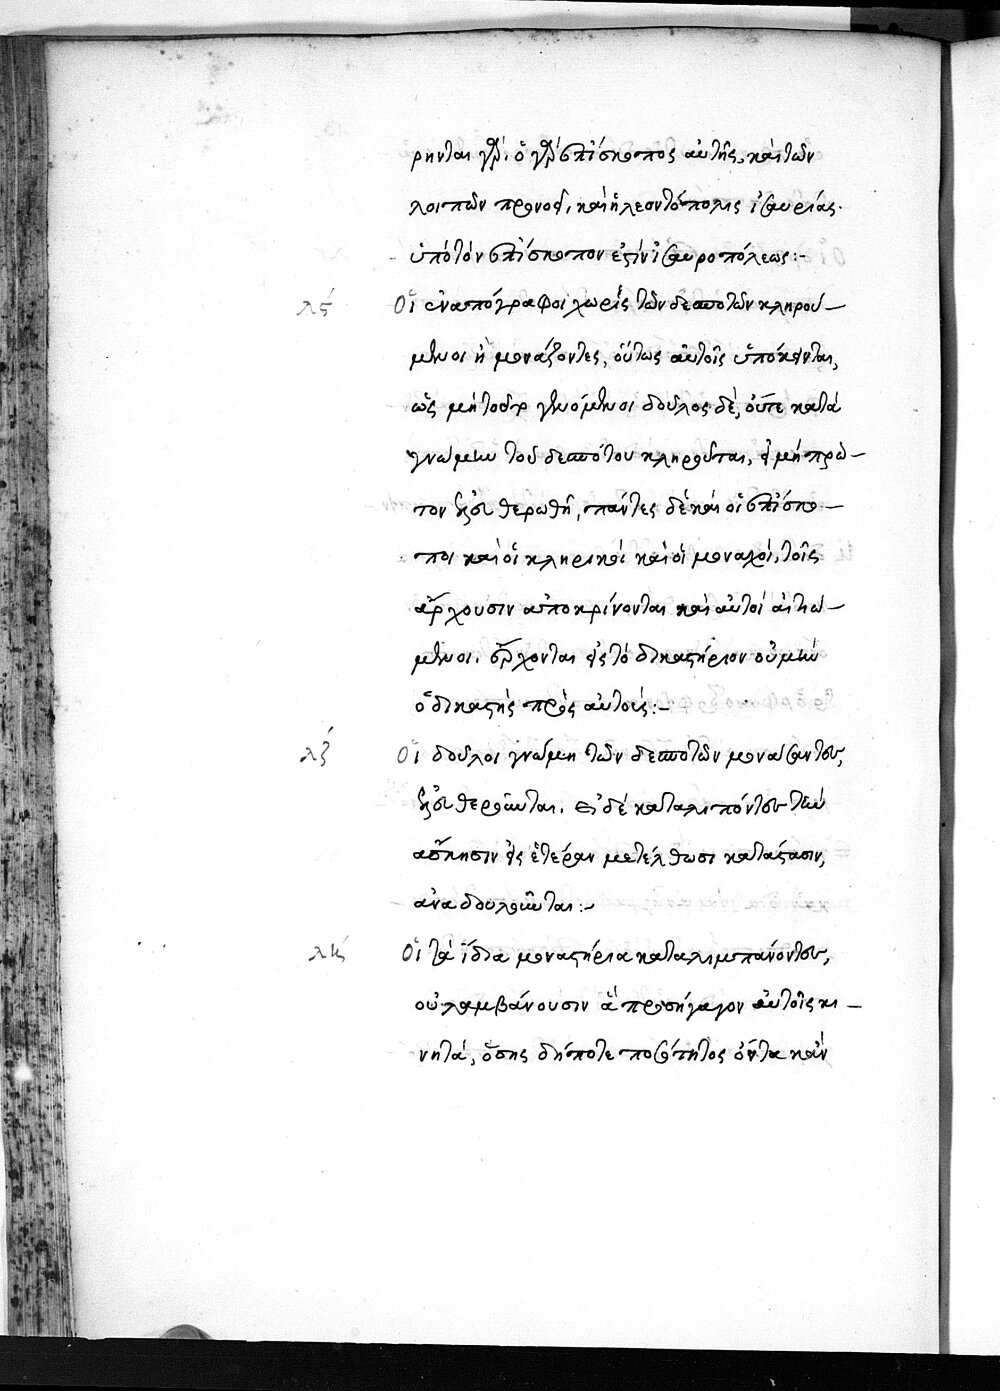 ρηνται γὰρ. ὁ γὰρ ἐπίσκοπος αὐτῆς, καὶ τῶν
λοιπῶν προνοεῖ, καὶ ἡ λεοντόπολις ἰσαυρίας·
ὑπὸ τὸν ἐπίσκοπον ἐστὶν ἰσαυροπόλεως:-
λς Οἱ ἐναπόγραφοι χωρὶς τῶν δεσποτῶν κληρού-
μενοι ἢ μονάζοντες, οὕτως αὐτοῖς ὑπόκεινται,
ὡς μὴ τοῦτο γενόμενοι δοῦλος δὲ, οὔτε κατὰ
γνώμην τοῦ δεσπότου κληροῦται, εἰ μὴ πρῶ-
τον ἐλευθερωθῆ, πάντες δὲ καὶ οἱ ἐπίσκο-
ποι καὶ οἱ κληρικοὶ καὶ οἱ μοναχοὶ, τοῖς
ἄρχουσιν ἀποκρίνονται καὶ αὐτοὶ αἰτιώ-
μενοι. ἔρχονται εἰς τὸ δικαστήριον οὐ μὴν
ὁ δικαστὴς πρὸς αὐτούς:-
λζ Οἱ δοῦλοι γνώμη τῶν δεσποτῶν μονάσαντες,
ἐλευθεροῦνται. εἰ δὲ καταλιπόντες τὴν
ἄσκησιν εἰς ἑτέραν μετέλθωσι κατάστασιν,
ἀναδουλοῦνται:-
λη Οἱ τὰ ἴδια μοναστήρια καταλιμπάνοντες,
οὐ λαμβάνουσιν ἃ προσήγαγον αὐτοῖς κι-
νητὰ, οἵας δήποτε ποσότητος ὄντα κἂν